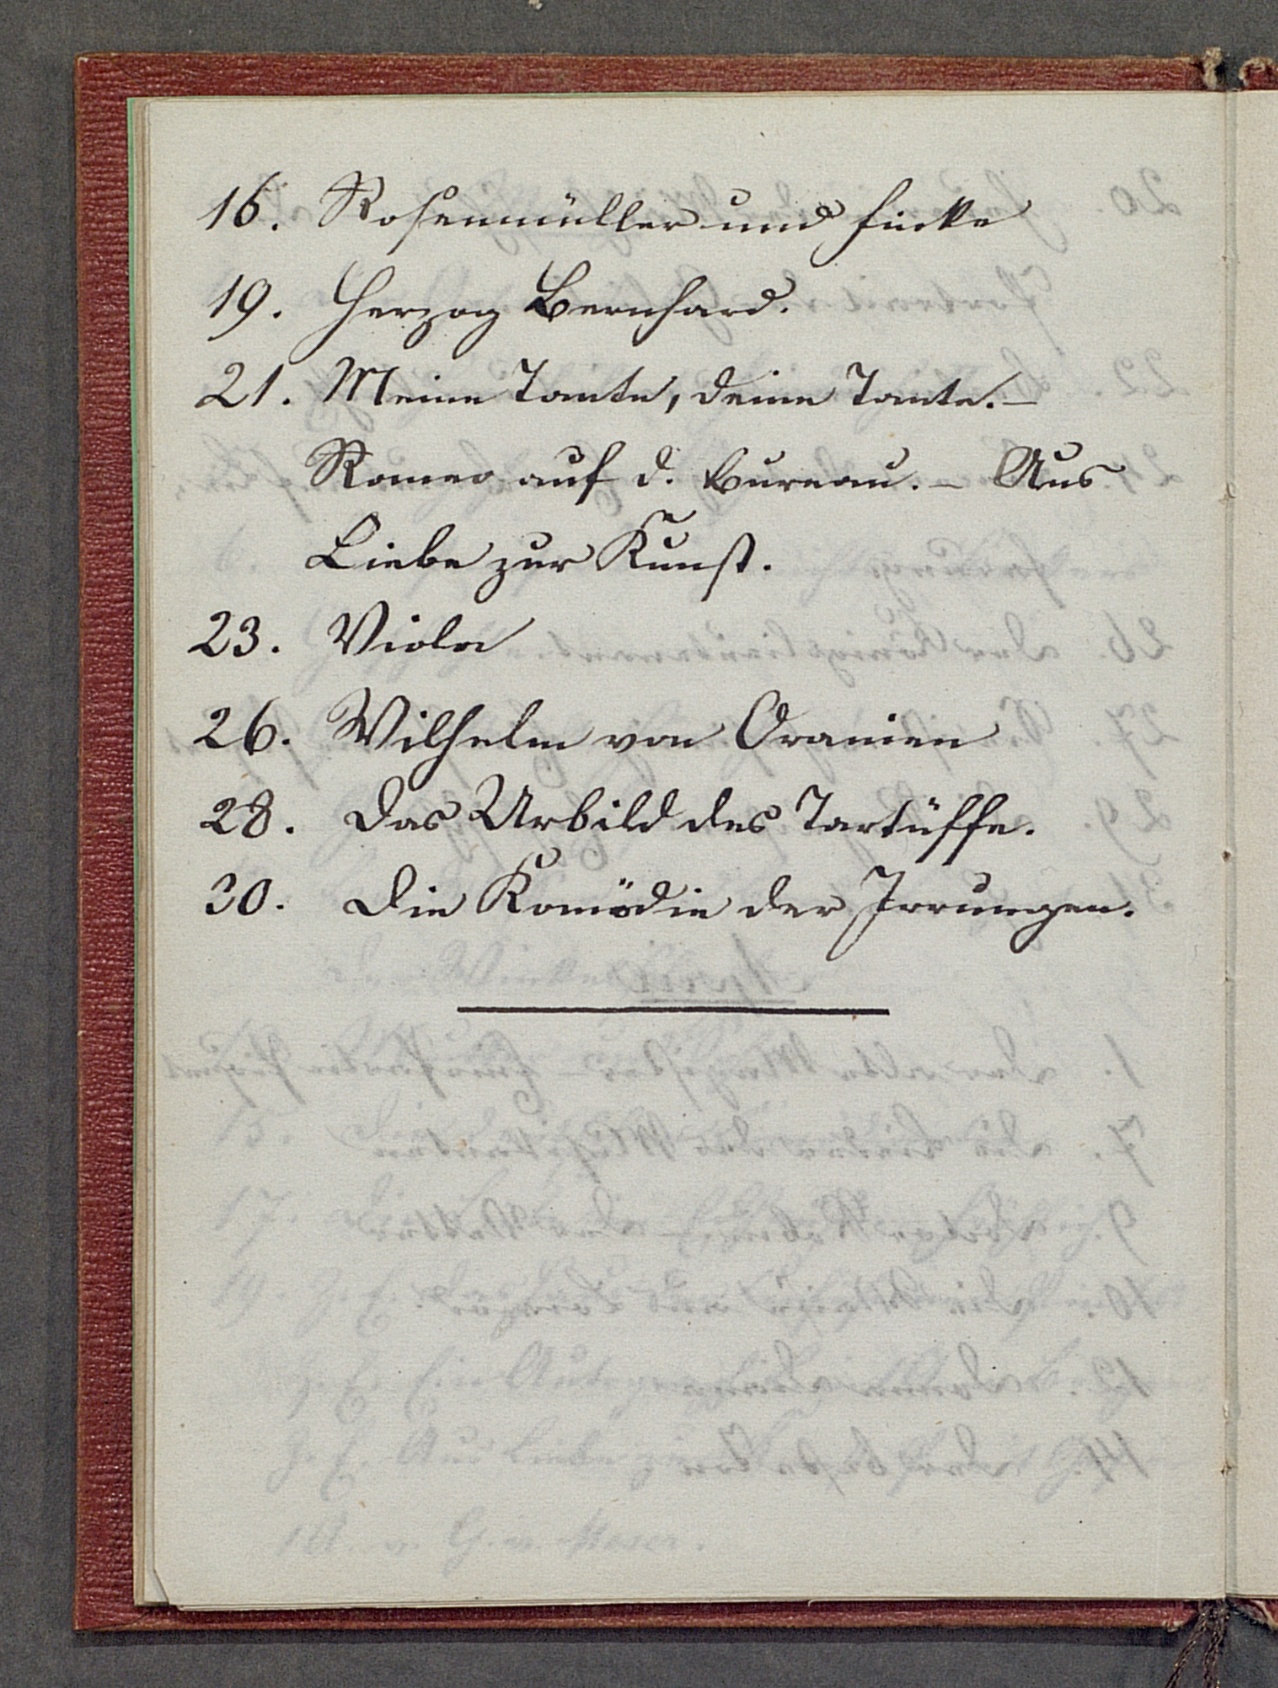 16. Rosenmüller und Finke
19. Herzog Bernhard.
21. Meine Tante, deine Tante. –
Romeo auf d. Bureau. – Aus
Liebe zur Kunst.
23. Viola
26. Wilhelm von Oranien
28. Das Urbild des Tartüffe.
30. Die Komödie der Irrungen.